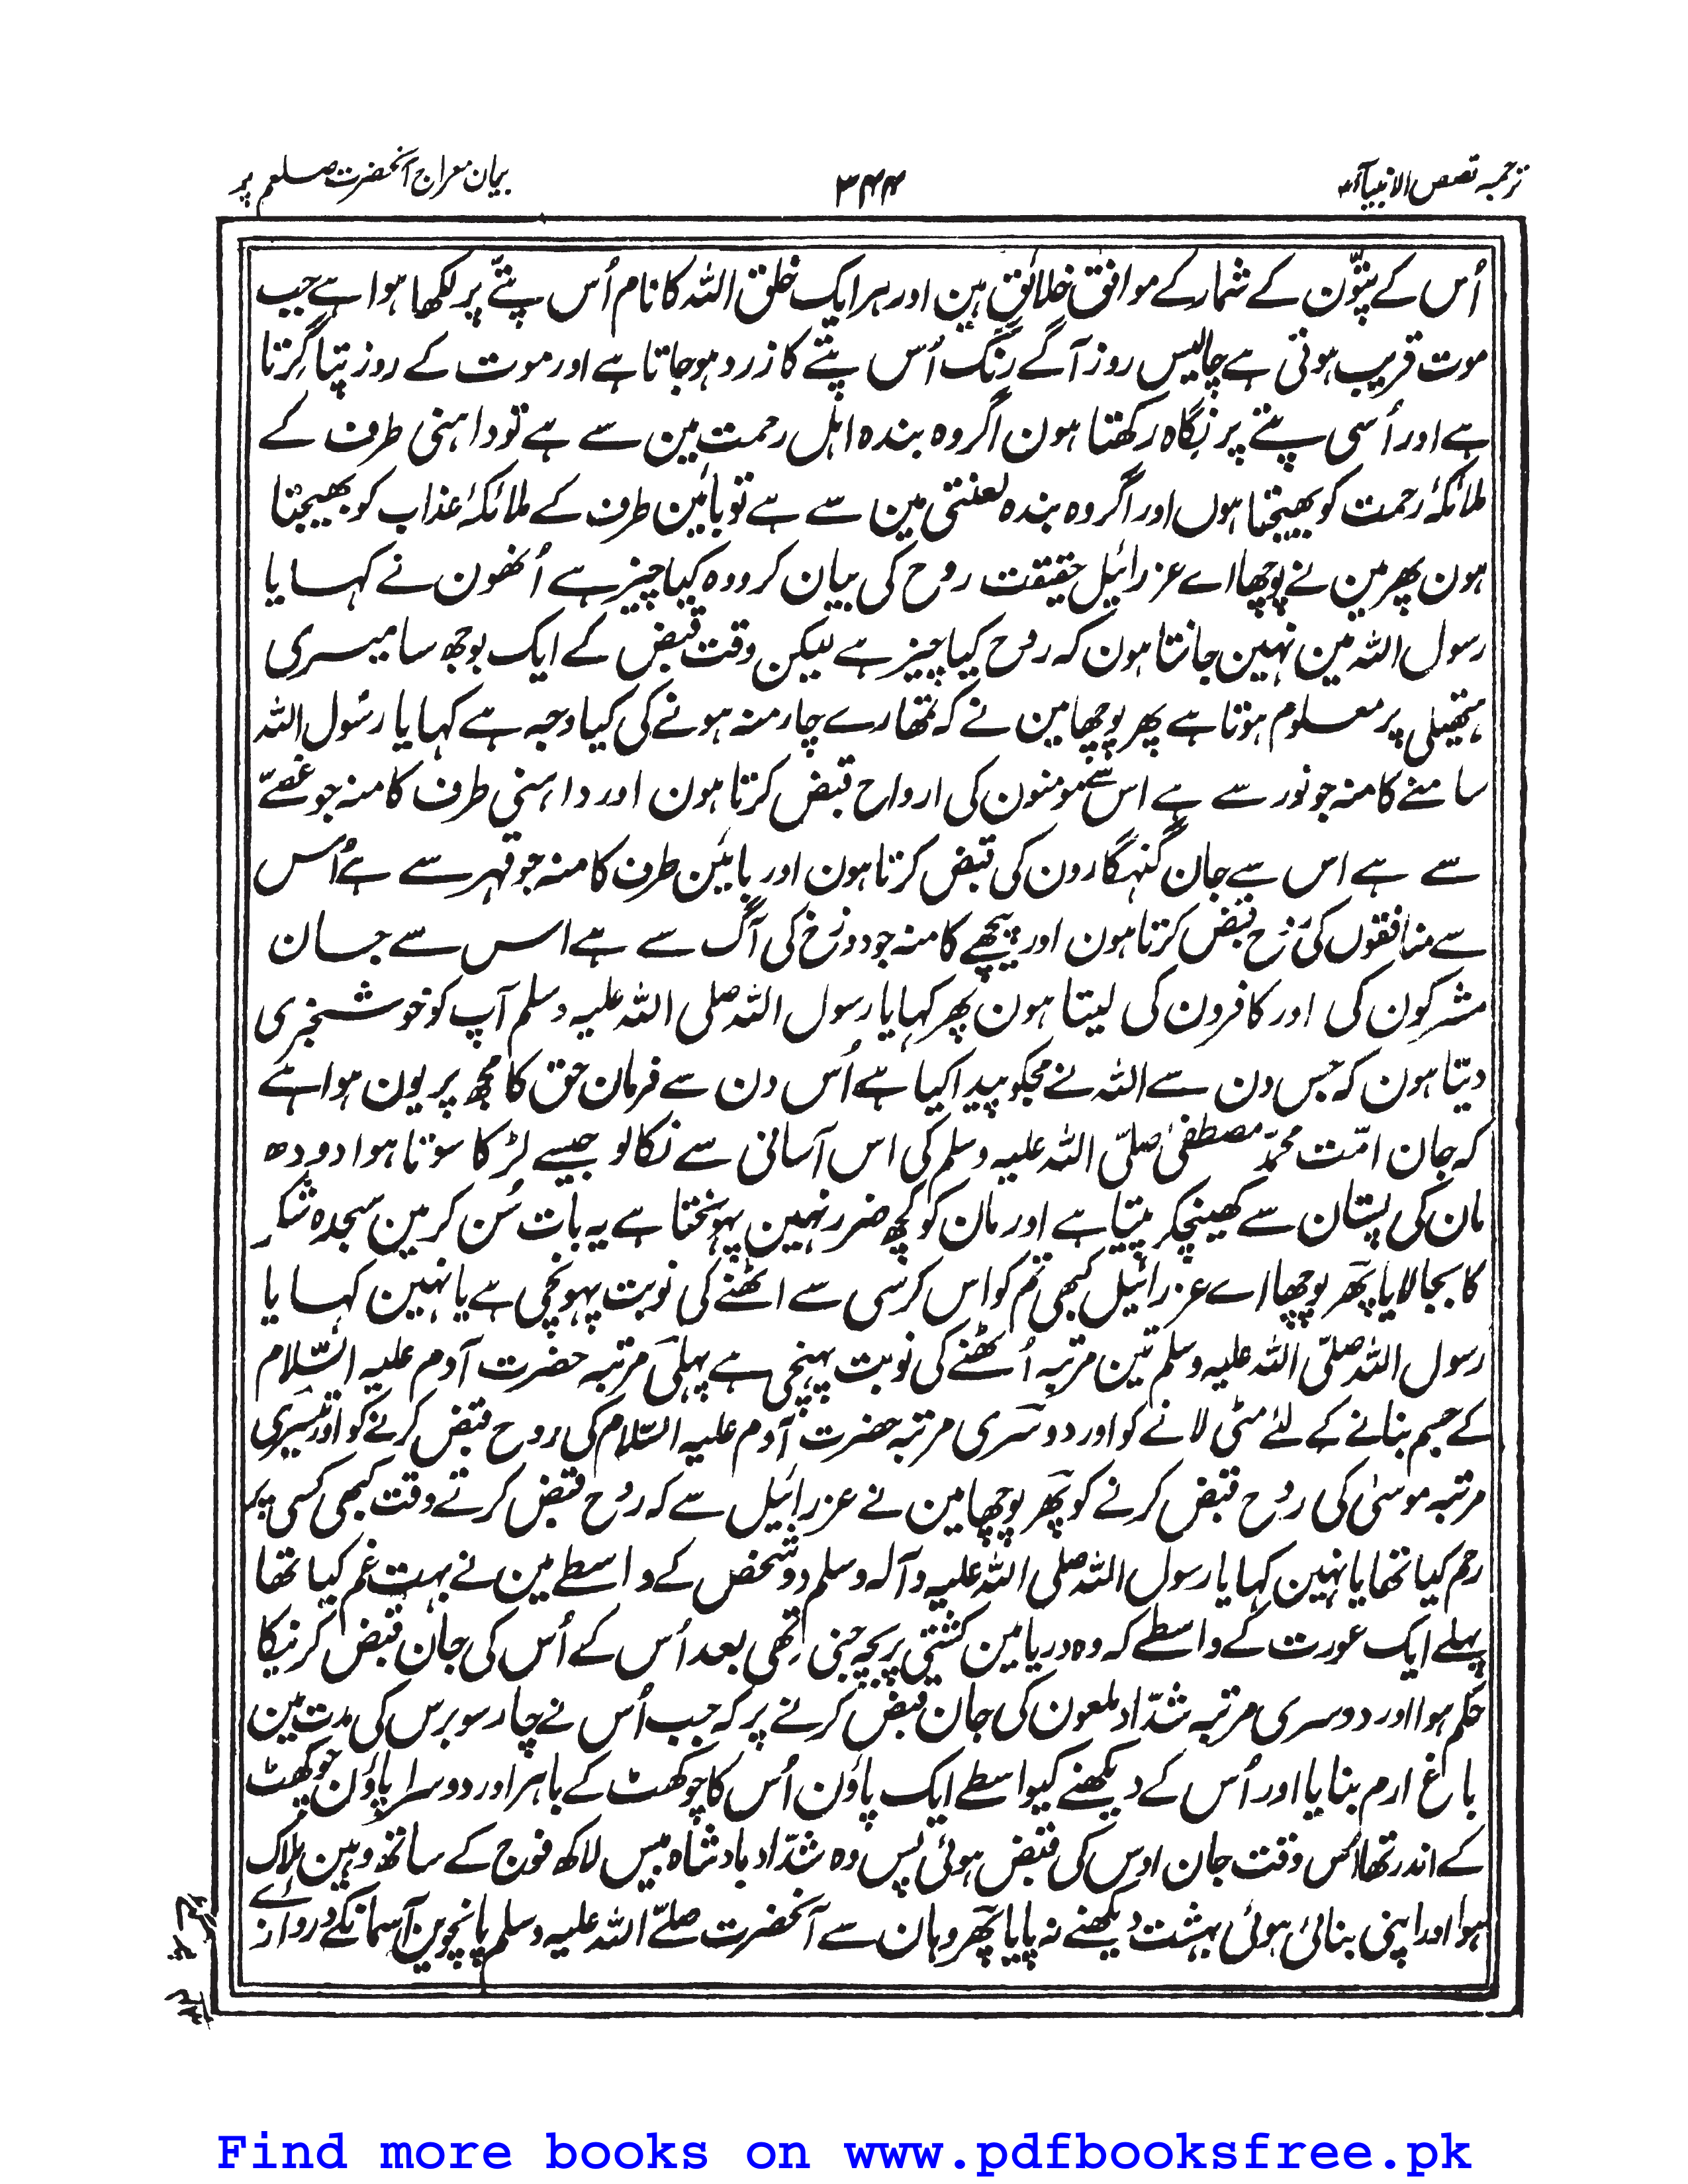 ترجمہ قصص الانبیآء
۳۴۴
بیان معراج آنحضرت صلعم پر
اُس کے پتّون کے شمار کے موافق خلائق ہین اور ہر ایک خلق اللہ کا نام اُس پتّے پر لکھا ہوا ہے جب
موت قریب ہوتی ہے چالیس روز آگے رنگ اُس پتے کا زرد ہو جاتا ہے اور موت کے روز پتا گرتا
ہے اور اُسی پتے پر نگاہ رکھتا ہون اگر وہ بندہ اہل رحمت مین سے ہے تو داہنی طرف کے
ملائکۂ رحمت کو بھیجتا ہوں اور اگر وہ بندہ لعنتی مین سے ہے تو بائین طرف کے ملائکۂ عذاب کو بھیجتا
ہون پھر مین نے پوچھا اے عزرائیل حقیقت روح کی بیان کرو وہ کیا چیز ہے اُنھون نے کہا یا
رسول اللہ مین نہین جانتا ہون کہ روح کیا چیز ہے لیکن وقت قبض کے ایک بوجھ سا میری
ہتھیلی پر معلوم ہوتا ہے پھر پوچھا مین نے کہ تمھارے چار منہ ہونے کی کیا وجہ ہے کہا یا رسُول اللہ
سامنے کا منہ جو نور سے ہے اس سے مومنون کی ارواح قبض کرتا ہون اور داہنی طرف کا منہ جو غصّے
سے ہے اس سے جان گنہگارون کی قبض کرتا ہون اور بائین طرف کا منہ جو قہر سے ہے اُس
سے منافقوں کی رُوح قبض کرتا ہون اور پیچھے کا منہ جو دوزخ کی آگ سے ہے اس سے جان
مشرکون کی اور کافرون کی لیتا ہون پھر کہا یا رسول اللہ صلی اللہ علیہ وسلم آپ کو خوشخبری
دیتا ہون کہ جس دن سے اللہ نے مجکو پیدا کیا ہے اُس دن سے فرمان حق کا مجھ پر یون ہوا ہے
کہ جان امّت محمّد مصطفیٰ صلّی اللہ علیہ وسلم کی اس آسانی سے نکالو جیسے لڑکا سوتا ہوا دودھ
مان کی پستان سے کھینچکر پیتا ہے اور مان کو کچھ ضرر نہین پہونختا ہے یہ بات سُن کر مین سجدہ شکر
کا بجا لایا پھر پوچھا اے عزرائیل کبھی تم کو اس کرسی سے اٹھنے کی نوبت پہونچی ہے یا نہین کہا یا
رسول اللہ صلّی اللہ علیہ وسلم تین مرتبہ اُٹھنے کی نوبت پہنچی ہے پہلی مرتبہ حضرت آدم علیہ السّلام
کے جسم بنانے کے لئے مٹی لانے کو اور دوسری مرتبہ حضرت آدم علیہ السّلام کی روح قبض کرنے کو اور تیسری
مرتبہ موسیٰ کی روح قبض کرنے کو پھر پوچھا مین نے عزرائیل سے کہ روح قبض کرتے وقت کبھی کسی پر
رحم کیا تھا یا نہین کہا یا رسول اللہ صلی اللہ علیہ وآلہ وسلم دو شخص کے واسطے مین نے بہت غم کیا تھا
پہلے ایک عورت کے واسطے کہ وہ دریا مین کشتی پر بچہ جنی تھی بعد اُس کے اُس کی جان قبض کرنیکا
حکم ہوا اور دوسری مرتبہ شدّاد ملعون کی جان قبض کرنے پر کہ جب اُس نے چار سو برس کی مدت مین
باغ ارم بنایا اور اُس کے دیکھنے کیواسطے ایک پاؤن اُس کا چوکھٹ کے باہر اور دوسرا پاؤن چوکھٹ
کے اندر تھا اُس وقت جان اوس کی قبض ہوئی پس وہ شدّاد بادشاہ بیس لاکھ فوج کے ساتھ وہین ہلاک
ہوا اور اپنی بنائی ہوئی بہشت دیکھنے نہ پایا پھر وہان سے آنحضرت صلے اللہ علیہ وسلم پانچوین آسمانکے دروازے
Find more books on www.pdfbooksfree.pk